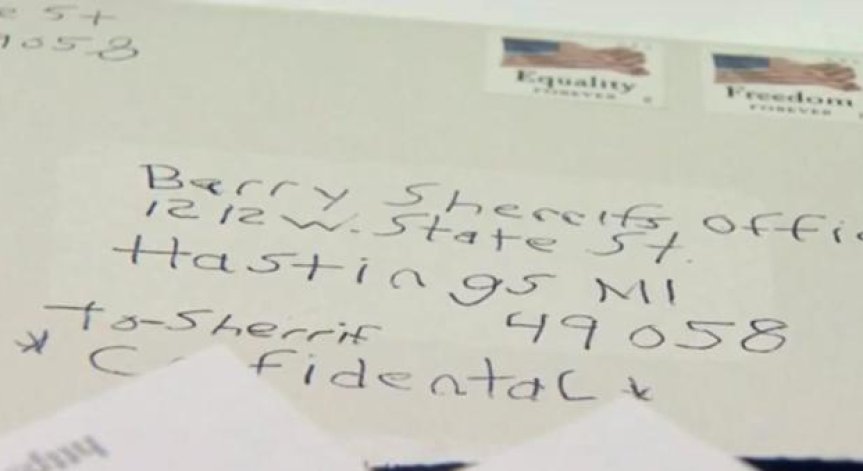 e St
9058
Equality
FOREVER
Freedom
FOREVER
Barry Sherrifs Offic
1212 W. State St.
Hastings MI
49058
To-Sherrif
* Confidental *
http